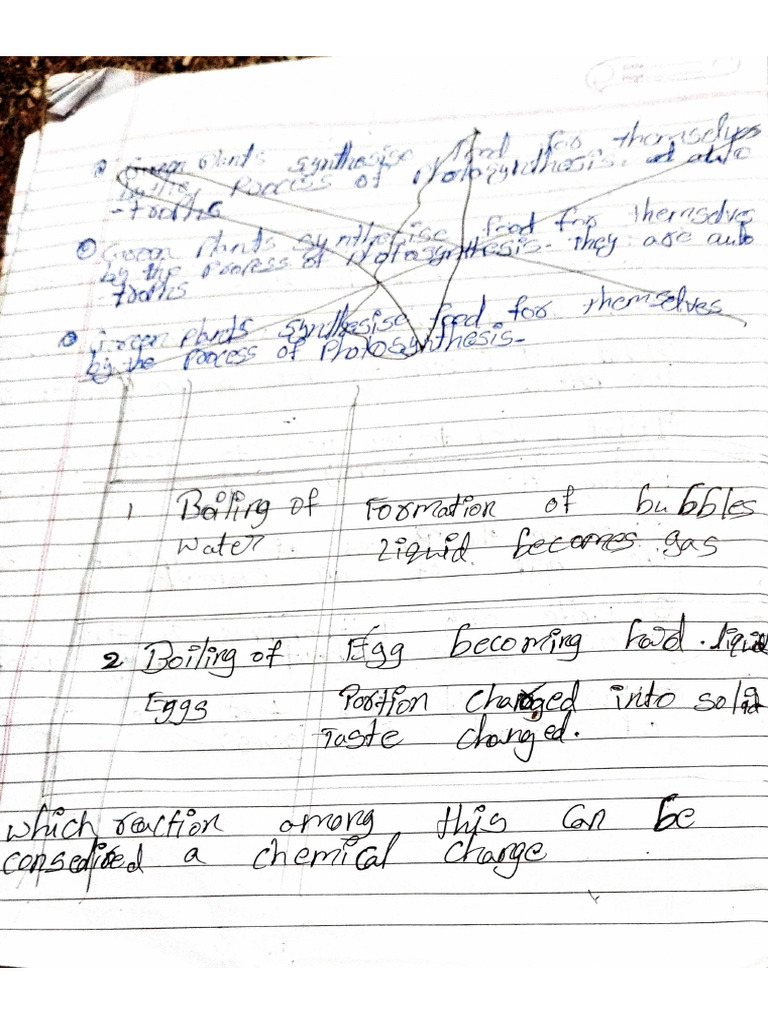 Green plants synthesise food for themselves
by the process of Photosynthesis.
- trophs
Green plants synthesise food for themselves
by the process of Photosynthesis. They are auto
- trophs
Green plants synthesise food for themselves
by the process of Photosynthesis.
1 Boiling of Formation of bubbles
water liquid becomes gas
2 Boiling of Egg becoming hard. liquid
Eggs Portion changed into solid
Taste changed.
which reaction among this can be
consedired a chemical change